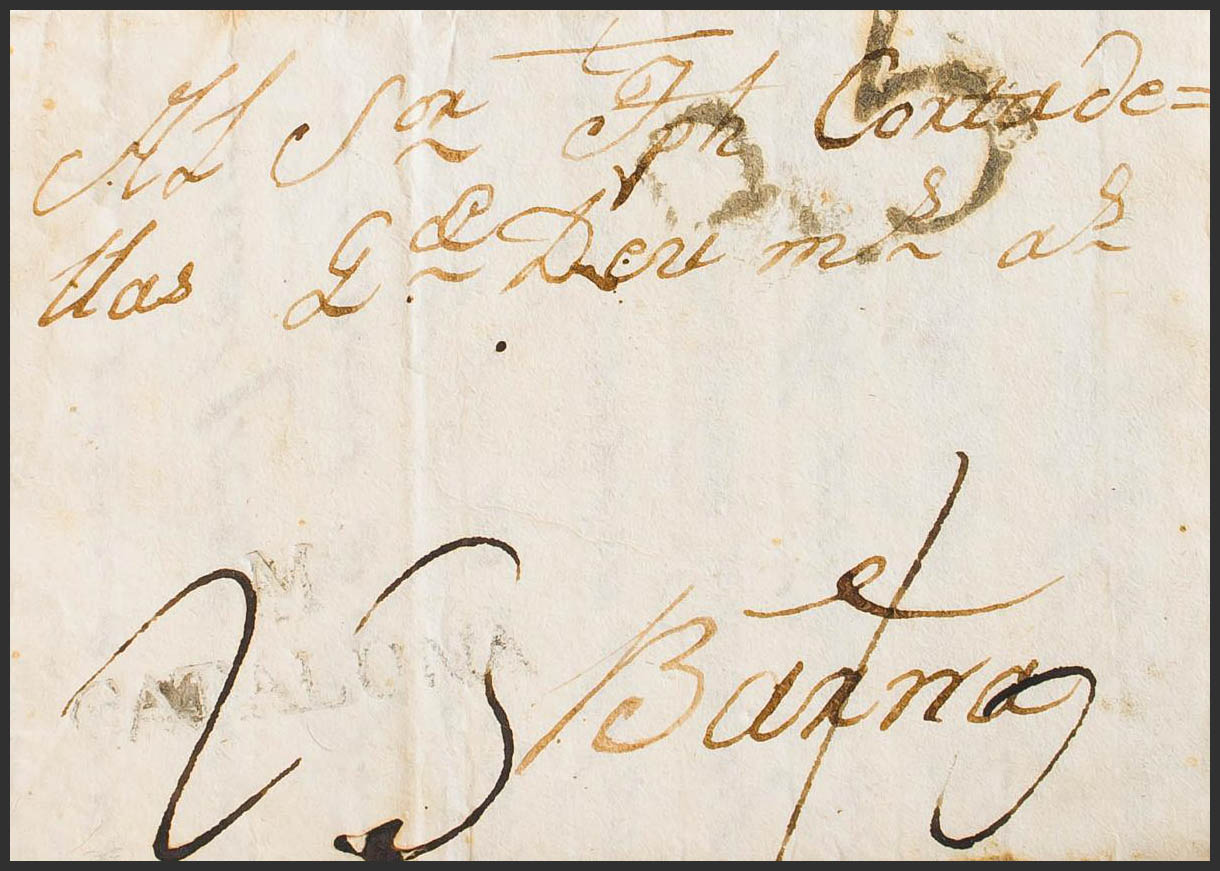 Al Sor Jph Cortade=
llas Gde Deu ms as
5
M
CATALUÑA
23 Barna